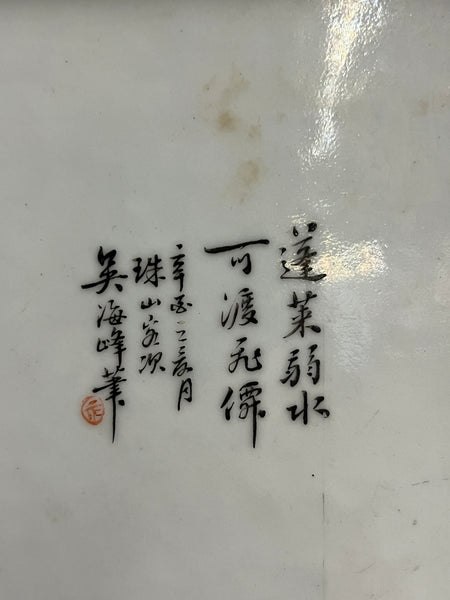 蓬莱弱水
可渡飛僊
辛酉之夏月
珠山客次
吴海峰筆